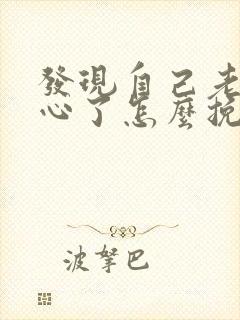 發現自己老
心了怎麼挽
波拏巴